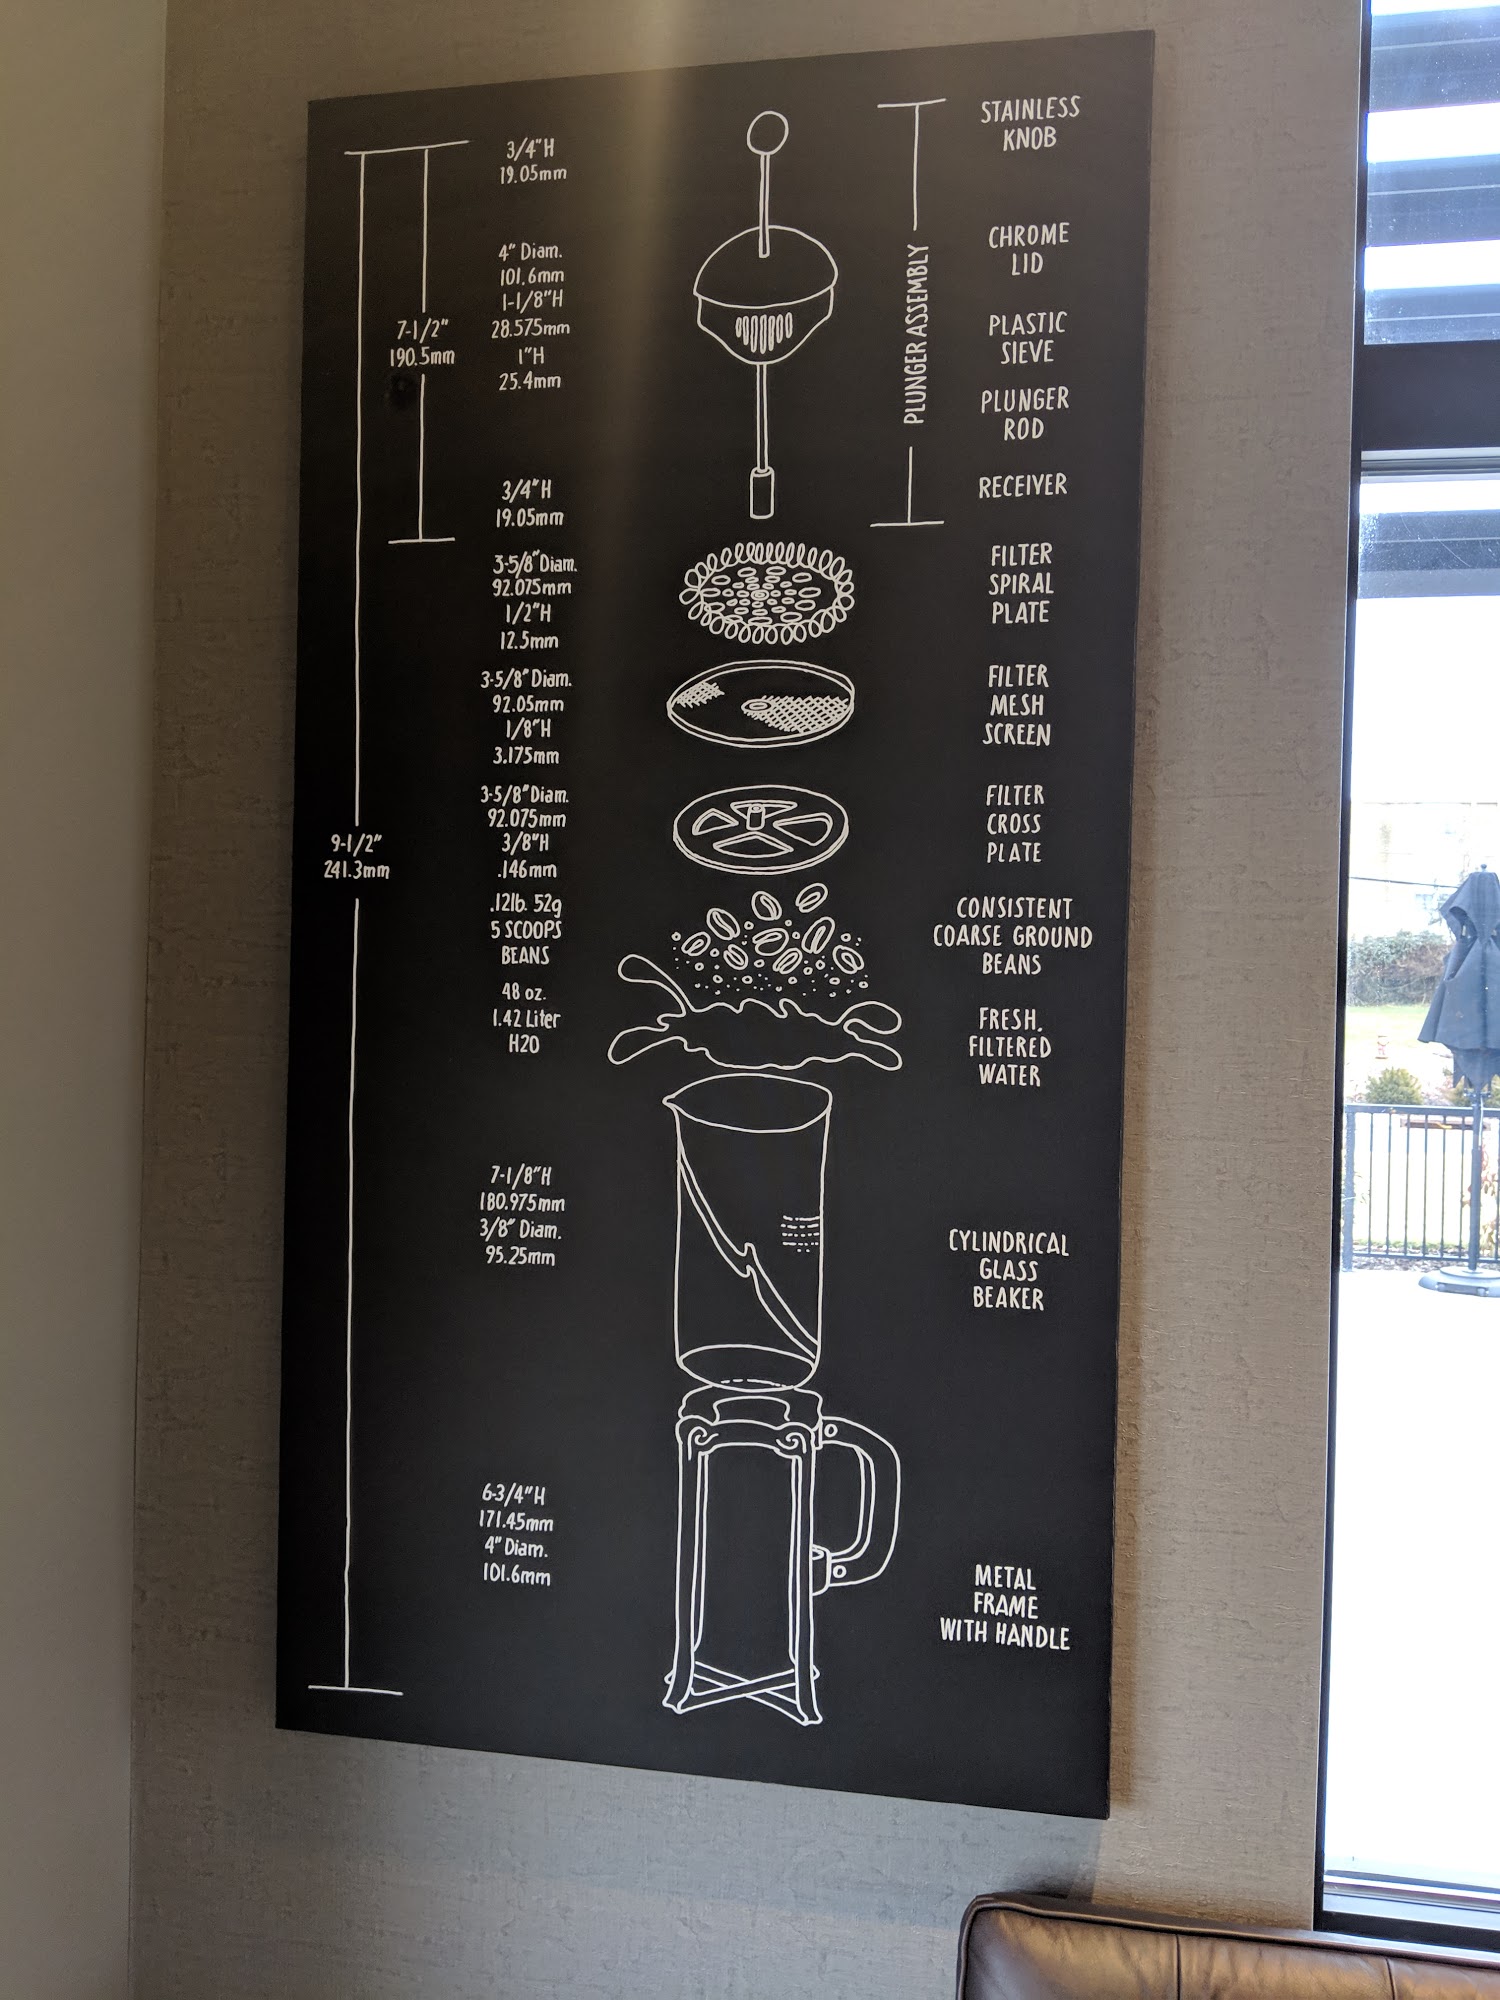 3/4"H
19.05mm
4" Diam.
101.6mm
1-1/8"H
28.575mm
1"H
25.4mm
7-1/2"
190.5mm
3/4"H
19.05mm
3-5/8" Diam.
92.075mm
1/2"H
12.5mm
3-5/8" Diam.
92.05mm
1/8"H
3.175mm
3-5/8" Diam.
92.075mm
3/8"H
.146mm
9-1/2"
241.3mm
.12lb. 52g
5 SCOOPS
BEANS
48 oz.
1.42 Liter
H2O
7-1/8"H
180.975mm
3/8" Diam.
95.25mm
6-3/4"H
171.45mm
4" Diam.
101.6mm
PLUNGER ASSEMBLY
STAINLESS
KNOB
CHROME
LID
PLASTIC
SIEVE
PLUNGER
ROD
RECEIVER
FILTER
SPIRAL
PLATE
FILTER
MESH
SCREEN
FILTER
CROSS
PLATE
CONSISTENT
COARSE GROUND
BEANS
FRESH,
FILTERED
WATER
CYLINDRICAL
GLASS
BEAKER
METAL
FRAME
WITH HANDLE